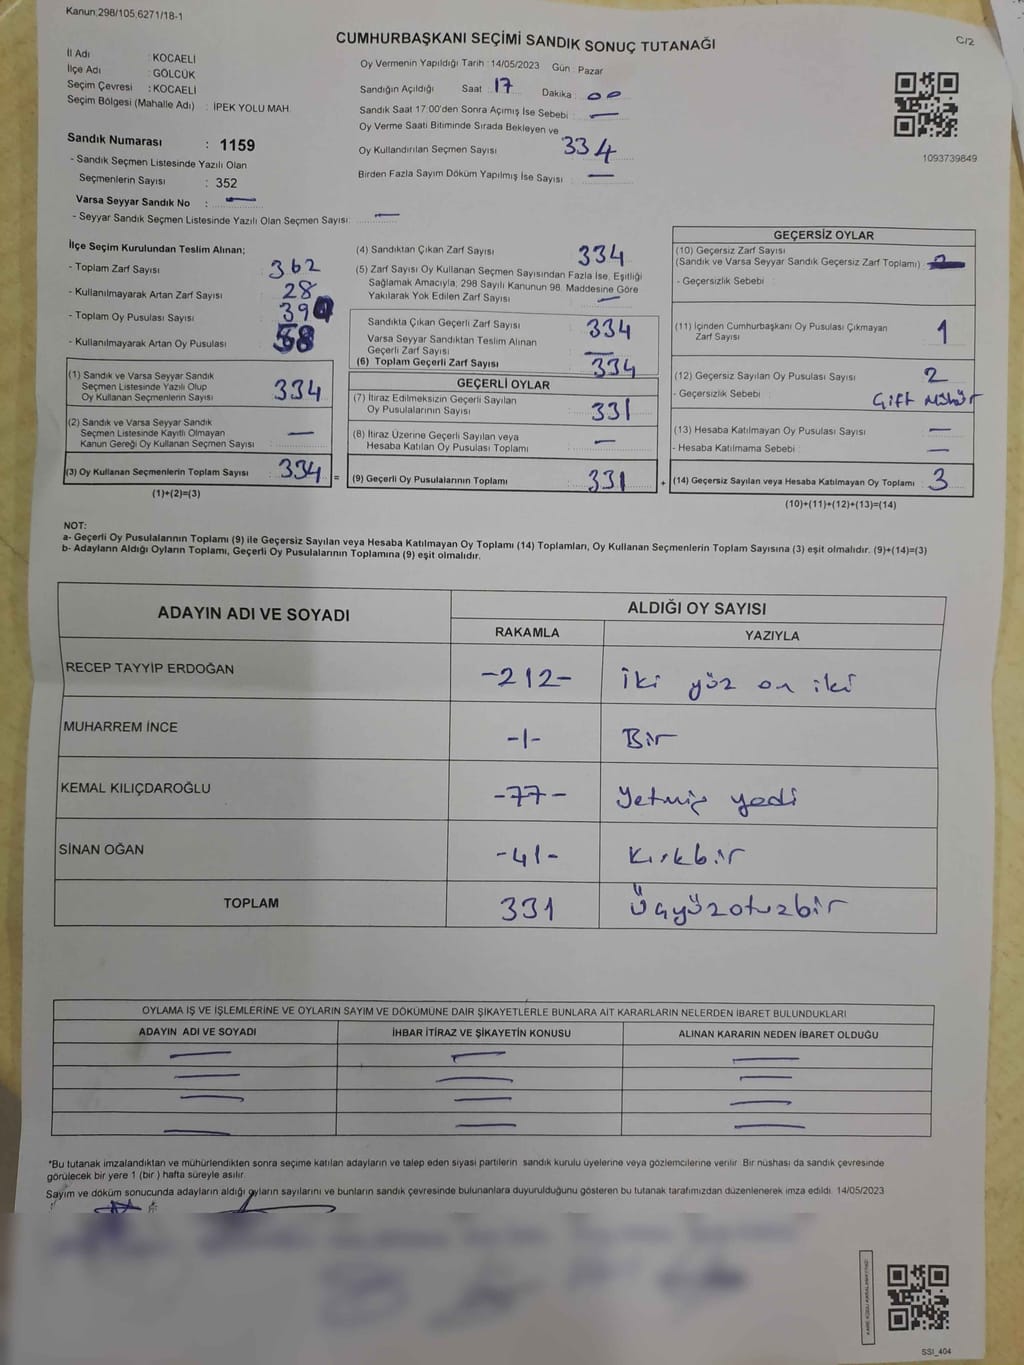 Kanun;298/105;6271/18-1
CUMHURBAŞKANI SEÇİMİ SANDIK SONUÇ TUTANAĞI
C/2
İl Adı : KOCAELİ
İlçe Adı : GÖLCÜK
Seçim Çevresi : KOCAELİ
Seçim Bölgesi (Mahalle Adı) : İPEK YOLU MAH.
Oy Vermenin Yapıldığı Tarih : 14/05/2023 Gün : Pazar
Sandığın Açıldığı Saat : 17 Dakika : 00
Sandık Saat 17:00'den Sonra Açımış İse Sebebi : —
Oy Verme Saati Bitiminde Sırada Bekleyen ve
Oy Kullandırılan Seçmen Sayısı : 334
Birden Fazla Sayım Döküm Yapılmış İse Sayısı : —
1093739849
Sandık Numarası : 1159
- Sandık Seçmen Listesinde Yazılı Olan
Seçmenlerin Sayısı : 352
Varsa Seyyar Sandık No : —
- Seyyar Sandık Seçmen Listesinde Yazılı Olan Seçmen Sayısı: —
İlçe Seçim Kurulundan Teslim Alınan;
- Toplam Zarf Sayısı : 362
- Kullanılmayarak Artan Zarf Sayısı : 28
- Toplam Oy Pusulası Sayısı : 39
- Kullanılmayarak Artan Oy Pusulası :
(1) Sandık ve Varsa Seyyar Sandık
Seçmen Listesinde Yazılı Olup
Oy Kullanan Seçmenlerin Sayısı : 334
(2) Sandık ve Varsa Seyyar Sandık
Seçmen Listesinde Kayıtlı Olmayan
Kanun Gereği Oy Kullanan Seçmen Sayısı : —
(3) Oy Kullanan Seçmenlerin Toplam Sayısı : 334 =
(1)+(2)=(3)
(4) Sandıktan Çıkan Zarf Sayısı : 334
(5) Zarf Sayısı Oy Kullanan Seçmen Sayısından Fazla İse, Eşitliği
Sağlamak Amacıyla, 298 Sayılı Kanunun 98. Maddesine Göre
Yakılarak Yok Edilen Zarf Sayısı : —
Sandıkta Çıkan Geçerli Zarf Sayısı : 334
Varsa Seyyar Sandıktan Teslim Alınan
Geçerli Zarf Sayısı : —
(6) Toplam Geçerli Zarf Sayısı : 334
GEÇERLİ OYLAR
(7) İtiraz Edilmeksizin Geçerli Sayılan
Oy Pusulalarının Sayısı : 331
(8) İtiraz Üzerine Geçerli Sayılan veya
Hesaba Katılan Oy Pusulası Toplamı : —
(9) Geçerli Oy Pusulalarının Toplamı : 331 +
GEÇERSİZ OYLAR
(10) Geçersiz Zarf Sayısı
(Sandık ve Varsa Seyyar Sandık Geçersiz Zarf Toplamı) :
- Geçersizlik Sebebi :
(11) İçinden Cumhurbaşkanı Oy Pusulası Çıkmayan
Zarf Sayısı : 1
(12) Geçersiz Sayılan Oy Pusulası Sayısı : 2
- Geçersizlik Sebebi : Çift Mühür
(13) Hesaba Katılmayan Oy Pusulası Sayısı : —
- Hesaba Katılmama Sebebi : —
(14) Geçersiz Sayılan veya Hesaba Katılmayan Oy Toplamı : 3
(10)+(11)+(12)+(13)=(14)
NOT:
a- Geçerli Oy Pusulalarının Toplamı (9) ile Geçersiz Sayılan veya Hesaba Katılmayan Oy Toplamı (14) Toplamları, Oy Kullanan Seçmenlerin Toplam Sayısına (3) eşit olmalıdır. (9)+(14)=(3)
b- Adayların Aldığı Oyların Toplamı, Geçerli Oy Pusulalarının Toplamına (9) eşit olmalıdır.
ADAYIN ADI VE SOYADI ALDIĞI OY SAYISI
RAKAMLA YAZIYLA
RECEP TAYYİP ERDOĞAN -212- İki yüz on iki
MUHARREM İNCE -1- Bir
KEMAL KILIÇDAROĞLU -77- Yetmiş yedi
SİNAN OĞAN -41- Kırkbir
TOPLAM 331 Üçyüzotuzbir
OYLAMA İŞ VE İŞLEMLERİNE VE OYLARIN SAYIM VE DÖKÜMÜNE DAİR ŞİKAYETLERLE BUNLARA AİT KARARLARIN NELERDEN İBARET BULUNDUKLARI
ADAYIN ADI VE SOYADI İHBAR İTİRAZ VE ŞİKAYETİN KONUSU ALINAN KARARIN NEDEN İBARET OLDUĞU
— — —
— — —
— — —
— — —
*Bu tutanak imzalandıktan ve mühürlendikten sonra seçime katılan adayların ve talep eden siyasi partilerin sandık kurulu üyelerine veya gözlemcilerine verilir. Bir nüshası da sandık çevresinde
görülecek bir yere 1 (bir ) hafta süreyle asılır.
Sayım ve döküm sonucunda adayların aldığı oyların sayılarını ve bunların sandık çevresinde bulunanlara duyurulduğunu gösteren bu tutanak tarafımızdan düzenlenerek imza edildi. 14/05/2023
KARE KODU KARALAMAYINIZ!
SSI_404